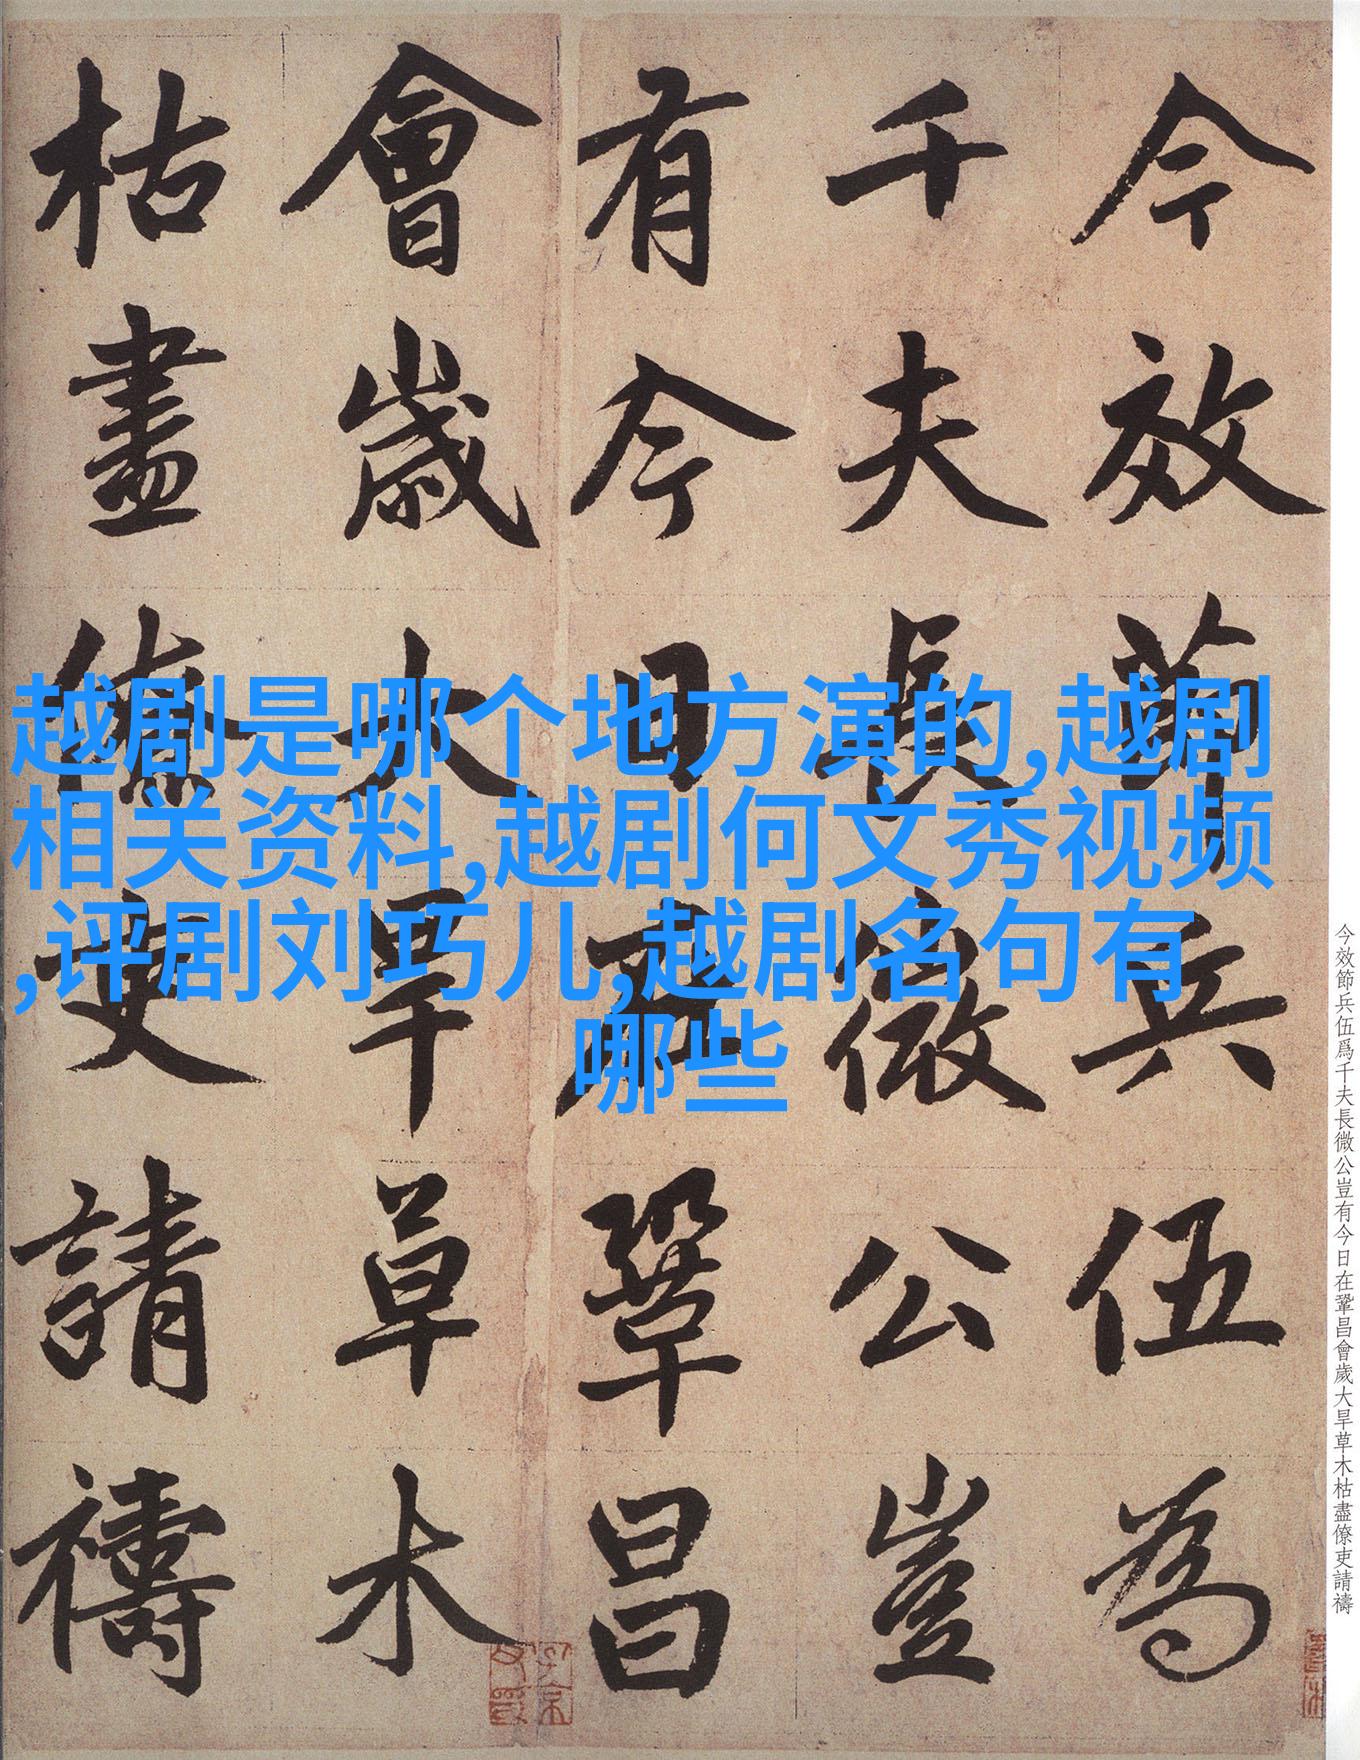 越剧是哪个地方演的,越剧
相关资料,越剧何文秀视频
,评剧刘巧儿,越剧名句有
哪些
今效節兵伍為
千夫長微公豈
有今日在鞏昌
會歲大旱草木
枯盡僚吏請禱
今效節兵伍爲千夫長微公豈有今日在鞏昌會歲大旱草木枯盡僚吏請禱